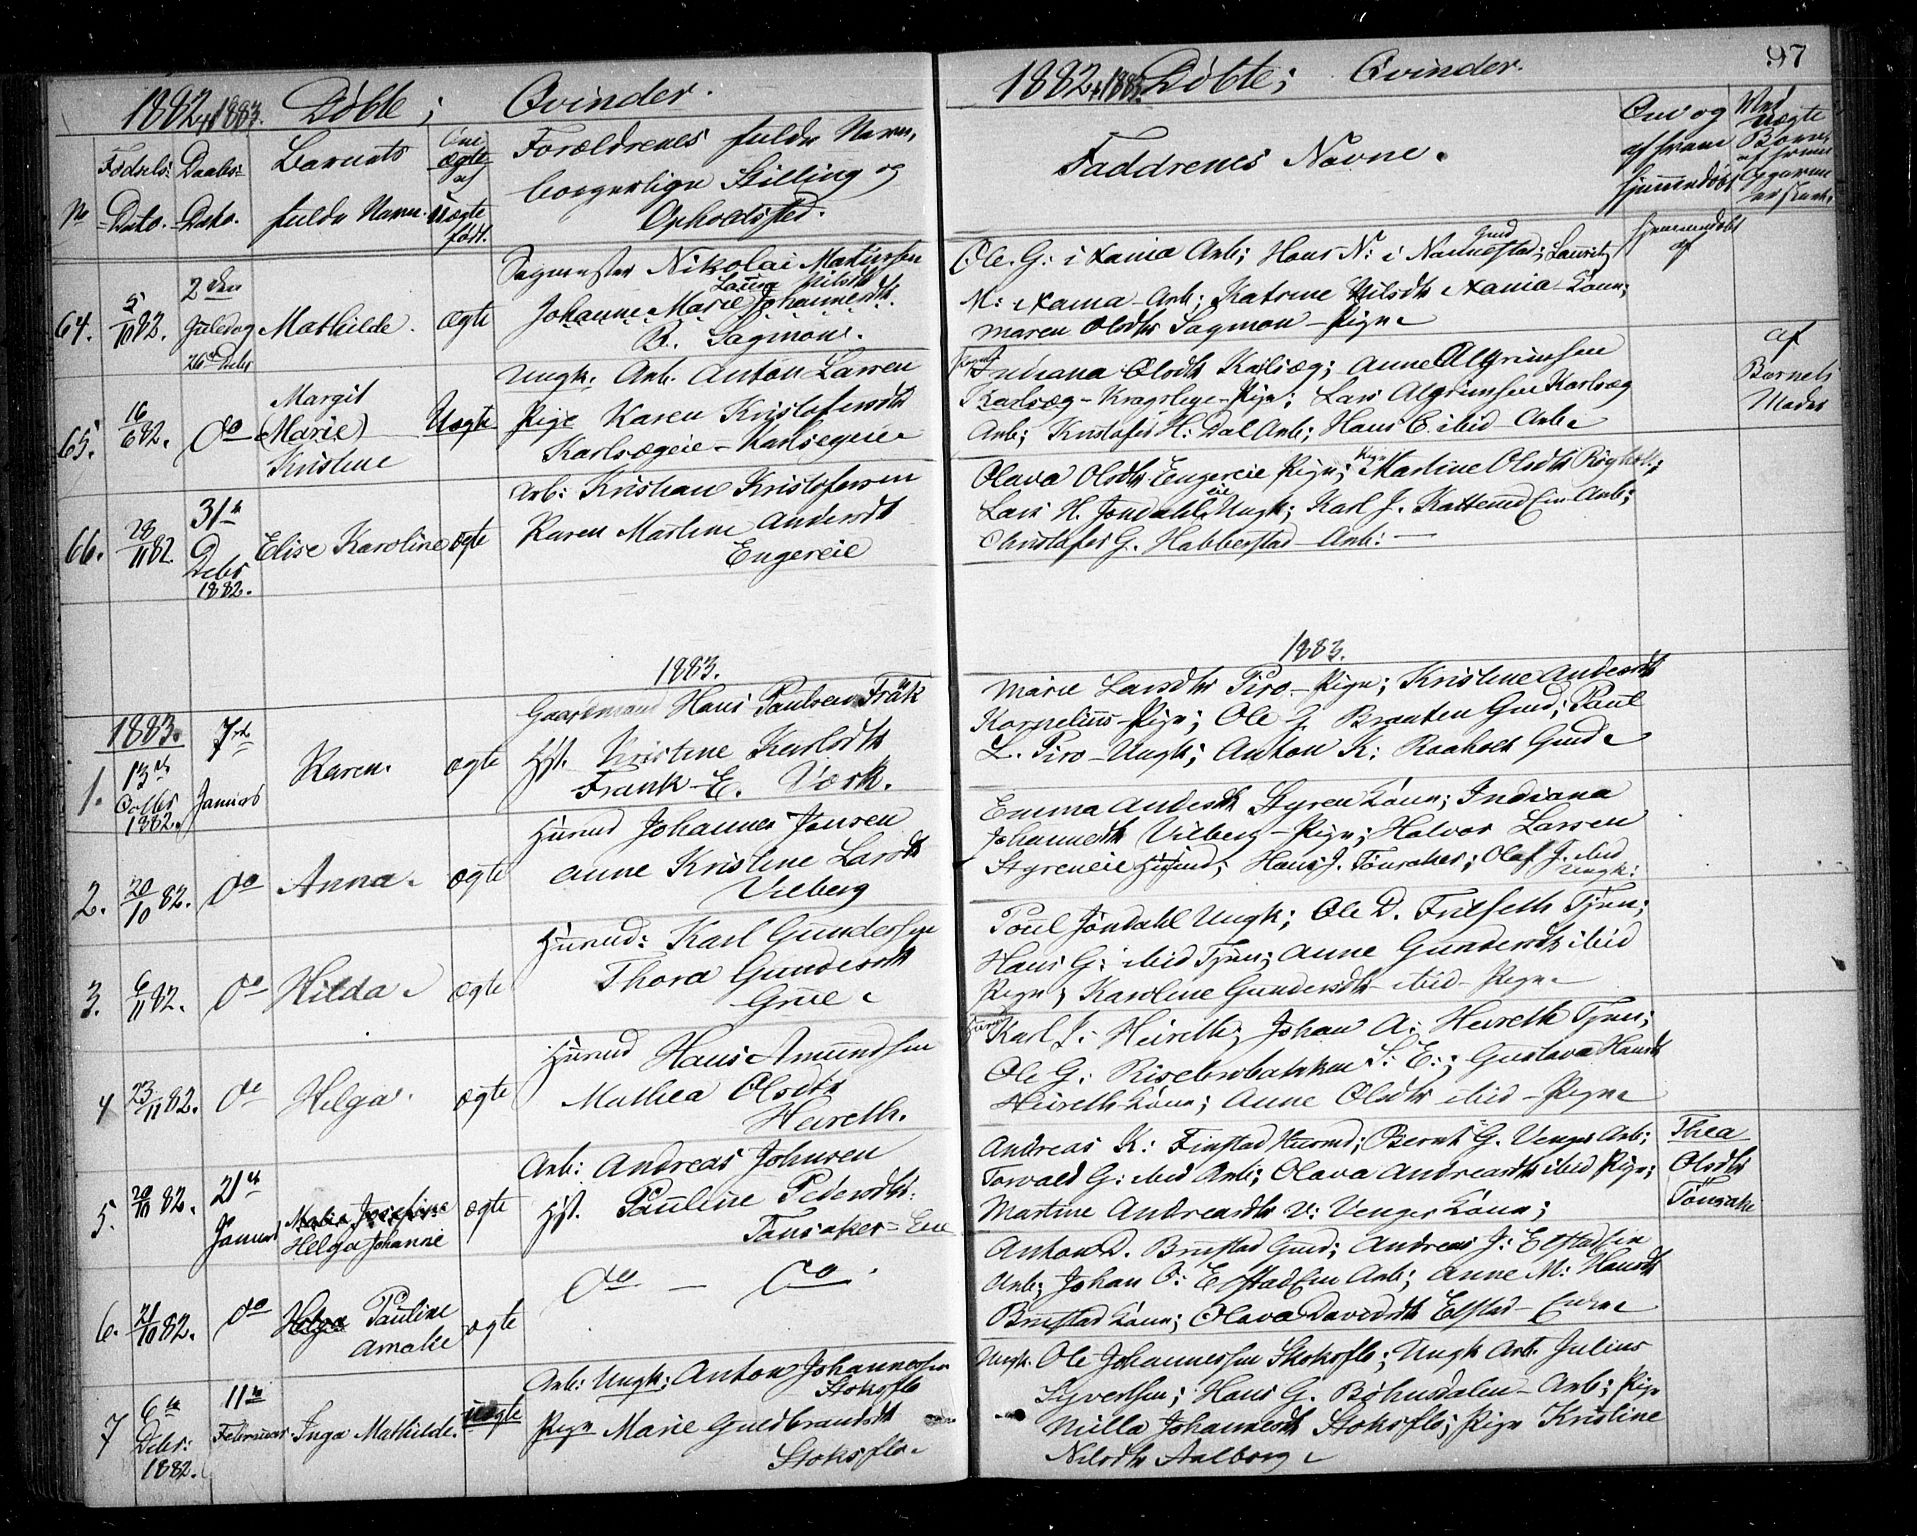 1882 & 1883. Døbte; Qvinder.
No
Fødsels:
Dato.
Daabs:
Dato.
Barnets
fulde Navn.
Om
ægte
og
Uægte
født.
Forældrenes fulde Navn,
borgerlige Stilling og
Opholdsted.
64.
5/11 82.
2den
Juledag
26de Debr
Mathilde.
ægte
Sagmester Nikolai Mathisen
Johanne Marie Johannesdtr.
B. Sagmoen.
65.
16/6 82.
do
Margit
(Marie)
Kristine
Uægte
Ungk. Arb. Anton Larsen
Pige Karen Kristofersdtr
66.
28/11 82.
31te
Debr
1882.
Elise Karoline
ægte
Arb: Kristian Kristofersen
Karen Martine Andersdtr
Engereie
1883.
1883.
1.
13de
Octbr
1882.
7de
Januar
Karen.
ægte
Gaardmand Hans Paulsen
Hst. Kristine Karlsdtr
Frank-E. Værk.
2.
20/10 82.
do
Anna.
ægte
Husmd Johannes Jensen
Anne Kristine Larsdtr
Vilberg
3.
6/11 82.
do
Hilda.
ægte
Husmd: Karl Gundersen
Thora Gundersdtr
Grue.
4
23/11 82.
do
Helga.
ægte
Husmd Hans Amundsen
Mathea Olsdtr
Heireth.
5.
20/10 82.
21de
Januar
Helga Johanne
ægte
Arb: Andreas Johnsen
Hst. Pauline Pedersdtr.
Tønsaker-Eie
6.
21/10 82.
do
Helga Pauline
Amalie
ægte
do — do.
7
6te
Debr:
1882.
11te
Februar
Inga Mathilde.
uægte
Arb: Ungk: Anton Johannessen
Stoksflo
Pige Marie Guldbrandsdtr
Stoksflo.
97
1882 & 1883. Døbte; Qvinder.
Faddrenes Navne.
Om og
af hvem
hjemmedøbt
Ved
uægte
Børn,
af hvem
Ole. G: i Xania Arb; Hans N: i Nannestad; Laurits
M: Xania-Arb; Katrine Nilsdtr Xania-Kone;
Maren Olsdtr Sagmoen-Pige
hjemmedøbt
af
Indiana Olsdtr Karlsæg; Anne Algrimsen
Karlsæg-Kragslege-Pige; Lars Algrimsen Karlsæg
Arb; Kristofer H: Dal Arb; Hans E. ibid-Arb.
af
Barnets
Moder
Olava Olsdtr Engereie Pige; Martine Olsdtr
Lars H. Jøndahl Ungk; Karl J. Arb;
Christofer G. Habberstad Arb: —
1883.
Marie Larsdtr Piro-Pige; Kristine Andersdtr
Kornelius-Pige; Ole Braaten Gmd; Paul
L. Piro-Ungk; Anton K: Raaholt Gmd.
Emma Andersdtr Styren Kone; Indiana
Johannesdtr Vilberg-Pige; Halvor Larsen
Styreneie Husmd; Hans J. Tønsaker; Olaf J. ibid
Ungk:
Poul Jøndahl Ungk; Ole D. Frilseth Tjen;
Hans G: ibid Tjen; Anne Gundersdtr ibid
Pige; Karoline Gundersdtr ibid-Pige
Husmd Karl J: Heireth; Johan A: Heireth Tjen;
Ole G: Risebrobakken S: E:; Gustava Hansdtr
Heireth-Kone; Anne Olsdtr ibid-Pige
Andreas K: Finstad Husmd; Bernt G. Venger Arb;
Torvald G: ibid Arb; Olava Andreasdtr ibid Pige;
Martine Andreasdtr V: Venger Kone;
Thea
Olsdtr
Tønsaker
Anton D. Brustad Gmd; Andreas J: Elstad Eie
Arb; Johan O: Elstad Eie Arb; Anne M: Hansdtr
Brustad Kone; Olava Davidsdtr Elstad-Enke
Ungk. Ole Johannessen Stoksflo; Ungk Arb. Julius
Syvertsen; Hans G. Bøhnsdalen-Arb; Pige
Milla Johannesdtr Stoksflo; Pige Kristine
Nilsdtr Aalborg.